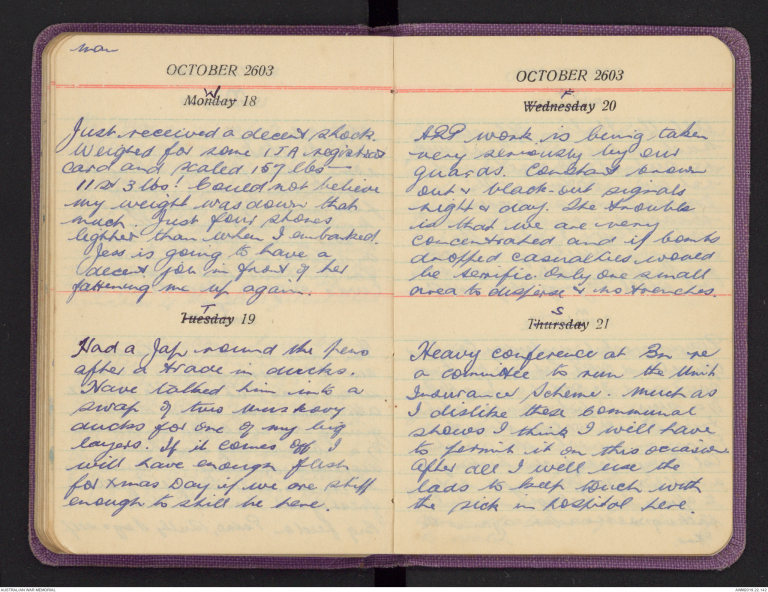 man
OCTOBER 2603
W
Monday 18
Just received a decent shock.
Weighed for some IJA registration
card and scaled 157 lbs -
11 st 3 lbs! Could not believe
my weight was down that
much. Just four stones
lighter than when I embarked.
Jess is going to have a
decent job in front of her
fattening me up again.
T
Tuesday 19
Had a Jap round the pens
after a trade in ducks.
Have talked him into a
swap of two muskovy
ducks for one of my big
layers. If it comes off I
will have enough flesh
for Xmas Day if we are still
enough to still be here.
OCTOBER 2603
F
Wednesday 20
ARP work is being taken
very seriously by our
guards. Constant brown
out & black-out signals
night & day. The trouble
is that we are very
concentrated and if bombs
dropped casualties would
be terrific. Only one small
area to disperse & no trenches.
S
Thursday 21
Heavy conference at Bn re
a committee to run the Unit
Insurance Scheme. Much as
I dislike these communal
shows I think I will have
to permit it on this occasion
After all I will use the
lads to keep touch with
the sick in hospital here.
AUSTRALIAN WAR MEMORIAL
AWM2019.22.142